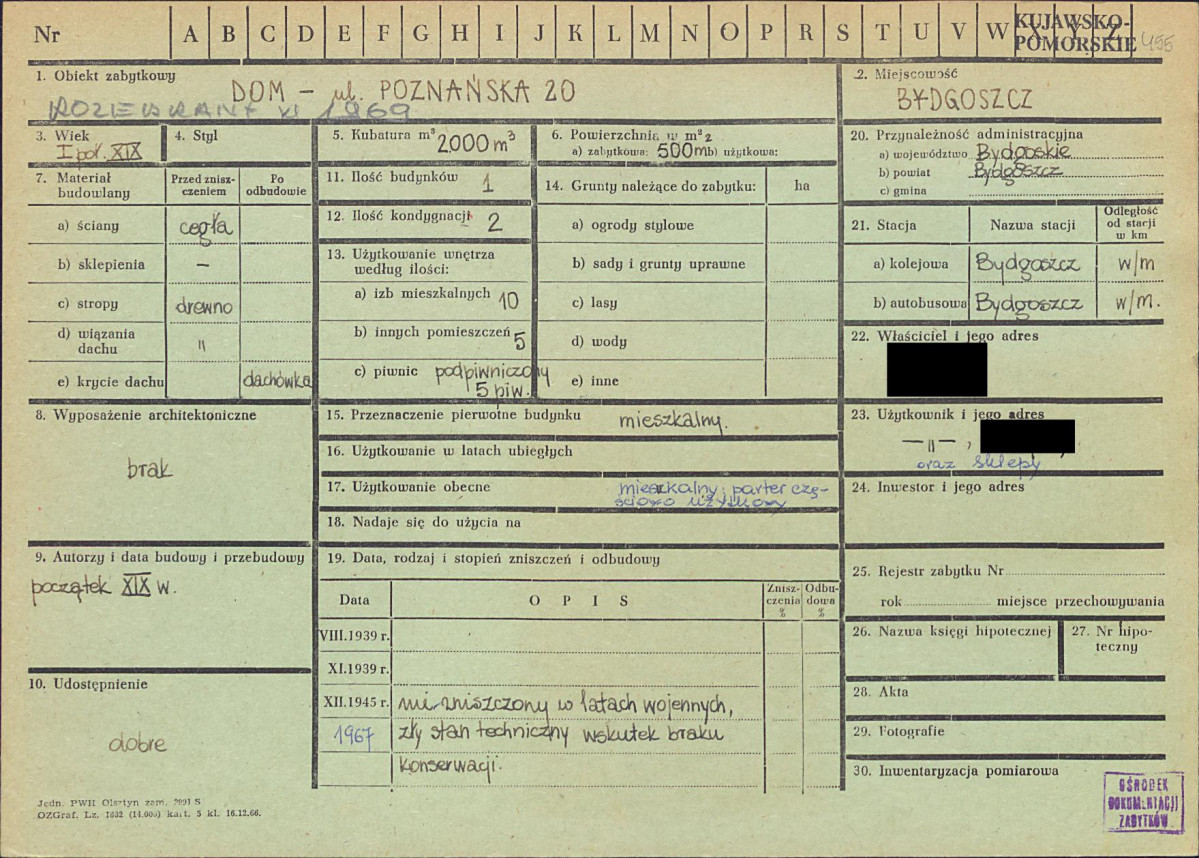 Nr A B C D E F G H I J K L M N O P R S T U V W X Y Z
KUJAWSKO-
POMORSKIE 455
1. Obiekt zabytkowy
DOM - ul. POZNAŃSKA 20
ROZEBRANY XI 1969
2. Miejscowość
BYDGOSZCZ
3. Wiek
I poł. XIX
4. Styl
5. Kubatura m³ 2000 m³
6. Powierzchnia w m²
a) zabytkowa: 500m b) użytkowa:
7. Materiał
budowlany
Przed znisz-
czeniem
Po
odbudowie
a) ściany cegła
b) sklepienia —
c) stropy drewno
d) wiązania
dachu "
e) krycie dachu dachówka
8. Wyposażenie architektoniczne
brak
9. Autorzy i data budowy i przebudowy
początek XIX w.
10. Udostępnienie
dobre
11. Ilość budynków 1
12. Ilość kondygnacji 2
13. Użytkowanie wnętrza
według ilości:
a) izb mieszkalnych 10
b) innych pomieszczeń 5
c) piwnic podpiwniczony
5 piw.
14. Grunty należące do zabytku: ha
a) ogrody stylowe
b) sady i grunty uprawne
c) lasy
d) wody
e) inne
15. Przeznaczenie pierwotne budynku mieszkalny.
16. Użytkowanie w latach ubiegłych
17. Użytkowanie obecne mieszkalny; parter czę-
ściowo użytkowy
18. Nadaje się do użycia na
19. Data, rodzaj i stopień zniszczeń i odbudowy
Data
OPIS
Znisz-
czenia
%
Odbu-
dowa
%
VIII.1939 r.
XI.1939 r.
XII.1945 r. nie zniszczony w latach wojennych,
1967 zły stan techniczny wskutek braku
konserwacji.
20. Przynależność administracyjna
a) województwo Bydgoskie
b) powiat Bydgoszcz
c) gmina
21. Stacja
Nazwa stacji
Odległość
od stacji
w km
a) kolejowa Bydgoszcz w/m
b) autobusowa Bydgoszcz w/m.
22. Właściciel i jego adres
23. Użytkownik i jego adres
— " — ,
oraz sklepy
24. Inwestor i jego adres
25. Rejestr zabytku Nr
rok miejsce przechowywania
26. Nazwa księgi hipotecznej
27. Nr hipo-
teczny
28. Akta
29. Fotografie
30. Inwentaryzacja pomiarowa
Jedn. PWH Olsztyn zam. 2991 S
OZGraf. Lz. 1832 (14.000) kart. 5 kl. 16.12.66.
OŚRODEK
DOKUMENTACJI
ZABYTKÓW